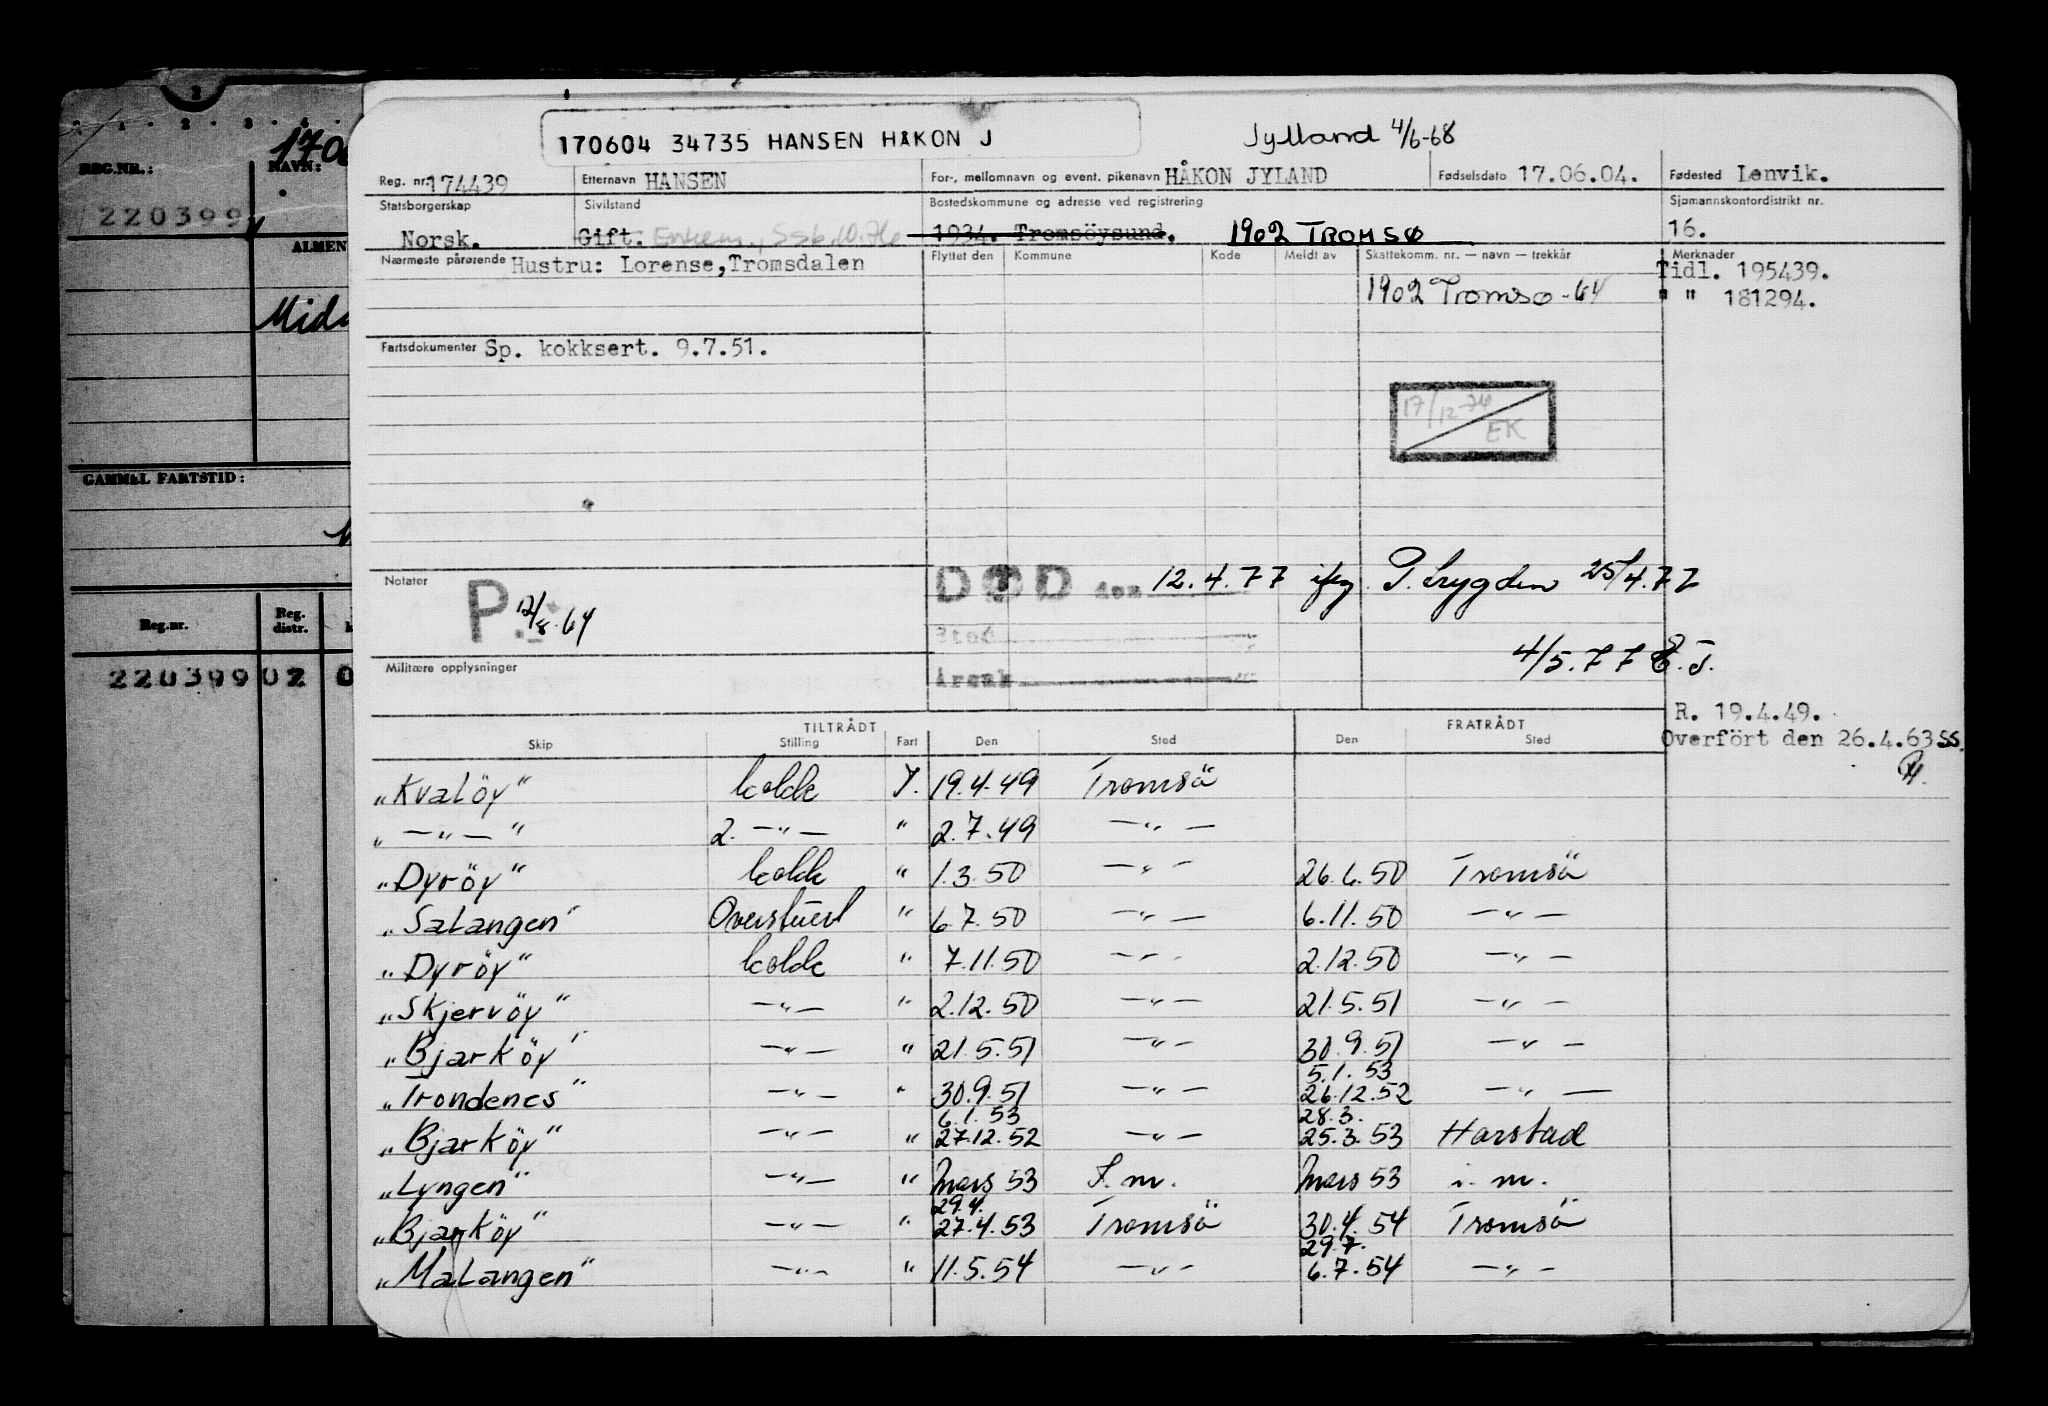 2
1 · 2 · 3 · 4
REG.NR.:
NAVN:
220399
ALMEN
GAMMEL FARTSTID:
Reg.nr.
Reg. distr.
220399 02 0
170604 34735 HANSEN HÅKON J
Jylland 4/6-68
Reg. nr. 174439 Etternavn HANSEN For-, mellomnavn og event. pikenavn HÅKON JYLAND Fødselsdato 17.06.04. Fødested Lenvik.
Statsborgerskap Sivilstand Bostedskommune og adresse ved registrering Sjømannskontordistrikt nr.
Norsk. Gift. Enkem., SS 6.10.76 1934. Tromsöysund. 1902 TROMSØ 16.
Nærmeste pårørende Hustru: Lorense, Tromsdalen Flyttet den Kommune Kode Meldt av Skattekomm. nr. — navn — trekkår Merknader
Tidl. 195439.
1902 Tromsø -64 " " 181294.
Fartsdokumenter Sp. kokksert. 9.7.51.
17/12-74 EK
Notater P. 12/8-64
DØD den 12.4.77 iføg. P. trygden 25/4.77
Sted
4/5.77 E.J.
Militære opplysninger
Årsak
R. 19.4.49.
TILTRÅDT FRATRÅDT
Overfört den 26.4.63 SS.
Skip Stilling Fart Den Sted Den Sted
"Kvalöy" kokk I. 19.4.49 Tromsö
" —"— " 2. —"— " 2.7.49 —"—
"Dyröy" kokk " 1.3.50 —"— 26.6.50 Tromsö
"Salangen" Overstuert " 6.7.50 —"— 6.11.50 —"—
"Dyröy" kokk " 7.11.50 —"— 2.12.50 —"—
"Skjervöy" —"— " 2.12.50 —"— 21.5.51 —"—
"Bjarköy" —"— " 21.5.51 —"— 30.9.51 —"—
5.1.53
"Trondenes" —"— " 30.9.51 —"— 26.12.52 —"—
6.1.53 28.3.
"Bjarköy" —"— " 27.12.52 —"— 25.3.53 Harstad
"Lyngen" —"— " Mars 53 I. m. Mars 53 i. m.
29.4.
"Bjarköy" —"— " 27.4.53 Tromsö 30.4.54 Tromsö
29.7.
"Malangen" —"— " 11.5.54 —"— 6.7.54 —"—